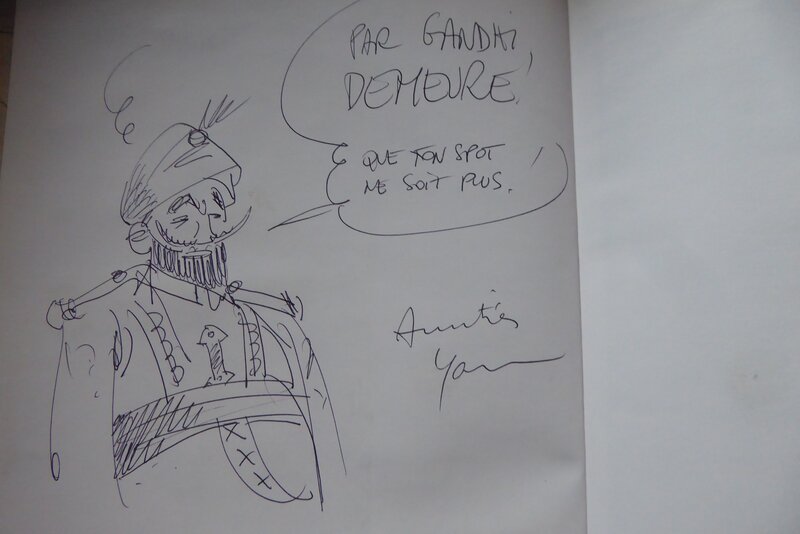 PAR GANDHI
DEMEURE!
QUE TON SPOT
NE SOIT PLUS!
Amitiés
Yann